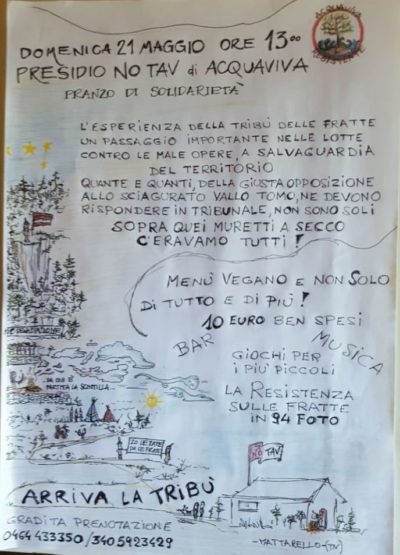 ACQUAVIVA
RESISTENTE
DOMENICA 21 MAGGIO ORE 13⁰⁰
PRESIDIO NO TAV di ACQUAVIVA
PRANZO DI SOLIDARIETÀ
L'ESPERIENZA DELLA TRIBÙ DELLE FRATTE
UN PASSAGGIO IMPORTANTE NELLE LOTTE
CONTRO LE MALE OPERE, A SALVAGUARDIA
DEL TERRITORIO
QUANTE E QUANTI, DELLA GIUSTA OPPOSIZIONE
ALLO SCIAGURATO VALLO TOMO, NE DEVONO
RISPONDERE IN TRIBUNALE, NON SONO SOLI
SOPRA QUEI MURETTI A SECCO
C'ERAVAMO TUTTI!
MENÙ VEGANO E NON SOLO
DI TUTTO E DI PIÙ!
10 EURO BEN SPESI
BAR
MUSICA
GIOCHI PER
I PIÙ PICCOLI
LA RESISTENZA
SULLE FRATTE
IN 94 FOTO
DA QUI È
PARTITA LA SCINTILLA
NO TAV
ARRIVA LA TRIBÙ
GRADITA PRENOTAZIONE
0464 433350 / 340 5923429
MATTARELLO-(TN)